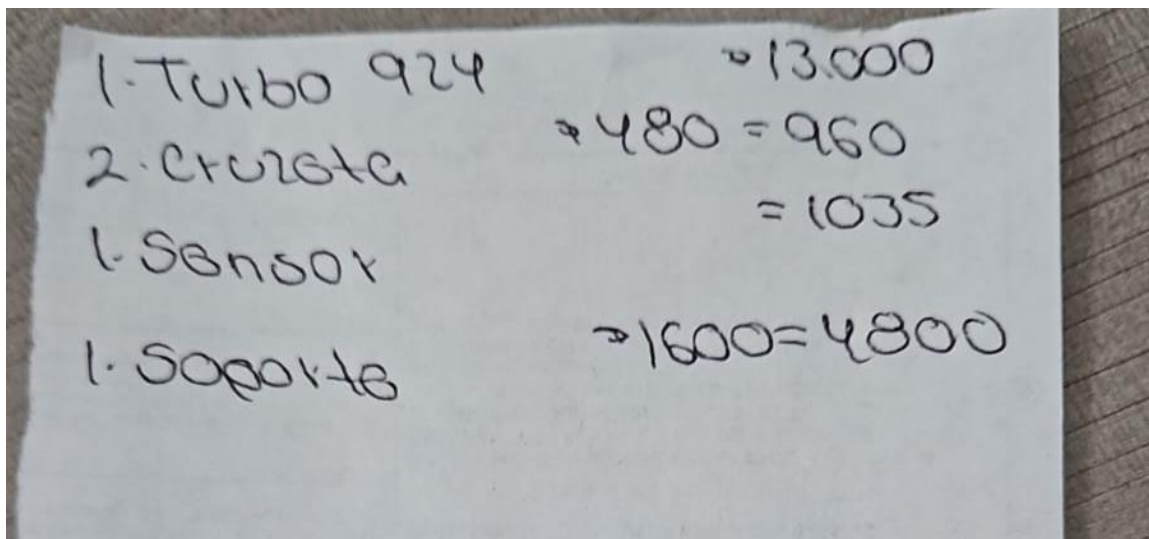 1. Turbo 924 → 13.000
2. Cruzeta → 480 = 960
1. Sensor = 1035
1. Soporte → 1600 = 4800